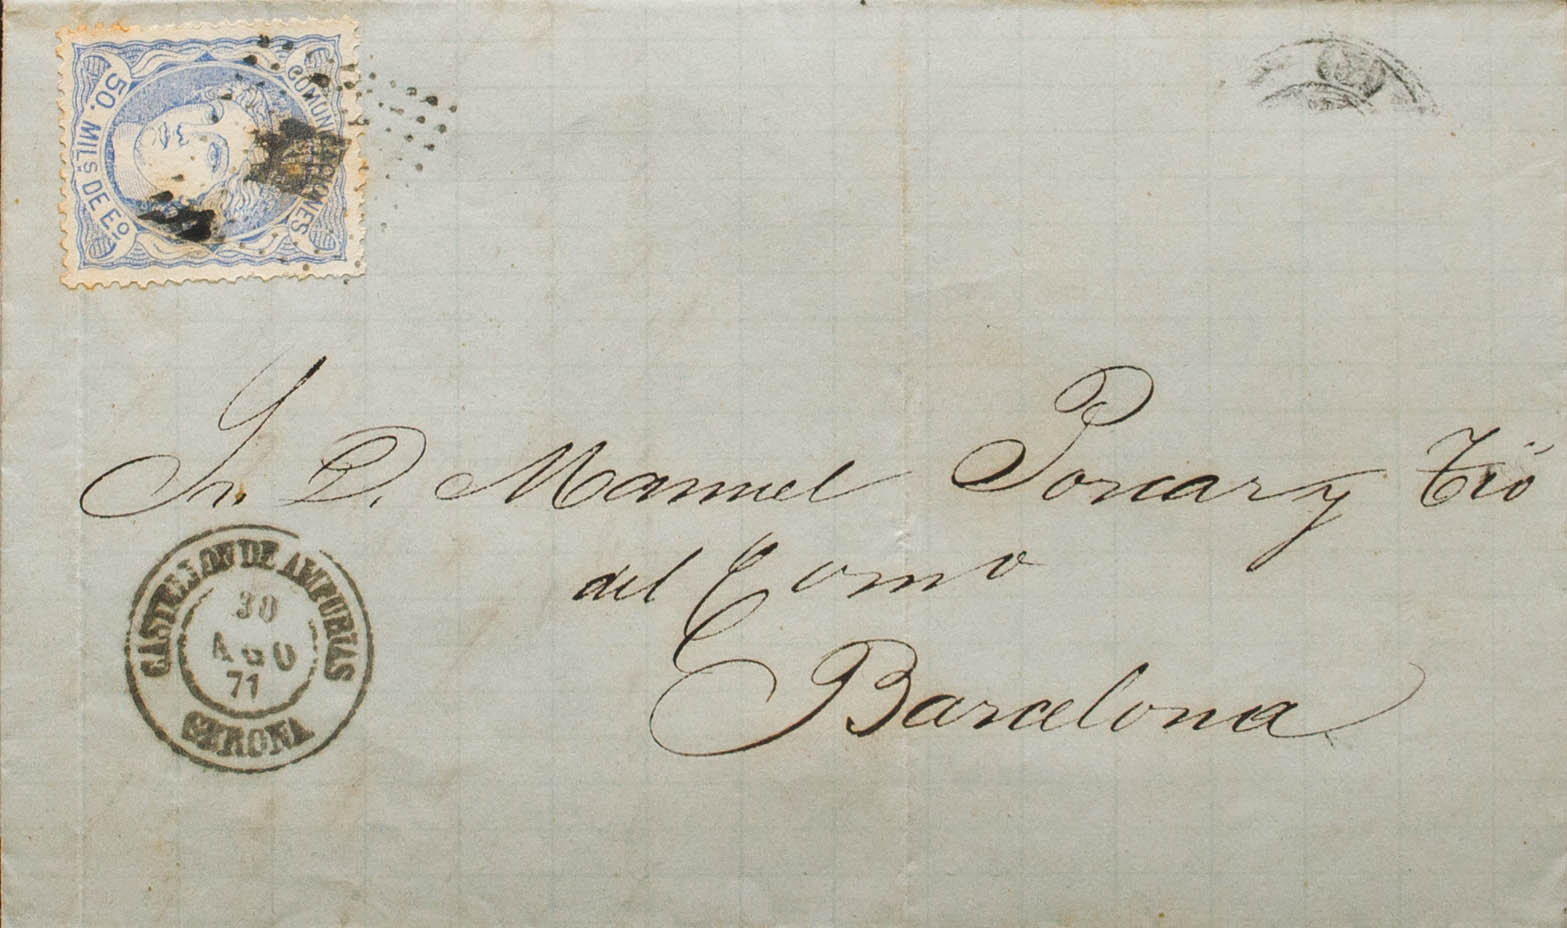 COMUNICACIONES
50. MILS DE EO
Sr. D. Manuel Porcar y Tió
del Comº
Barcelona
CASTELLON DE AMPURIAS
30
AGO
71
GERONA